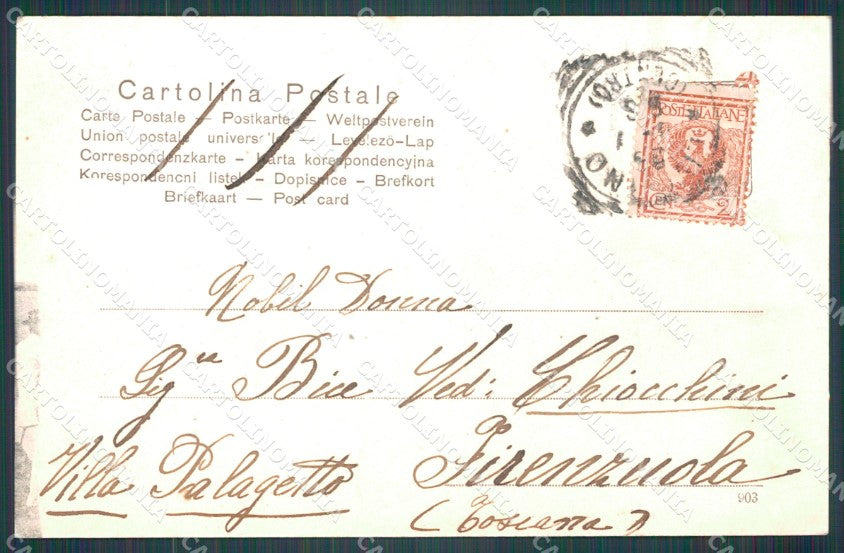 Cartolina Postale
Carte Postale — Postkarte — Weltpostverein
Union postale universelle — Levelező-Lap
Correspondenzkarte — Karta korespondencyjna
Korespondencní listek — Dopisnice — Brefkort
Briefkaart — Post card
POSTE ITALIANE
2
(CENTRO)
Nobil Donna
Sigra Bice Ved: Chiocchini
Villa Palagetto Firenzuola
(Toscana)
903
CARTOLINOMANIA